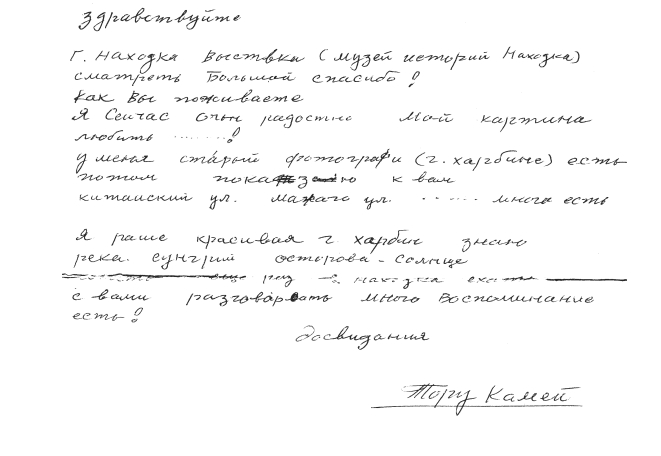 здравствуйте
г. Находка выствка (музей историй Находка)
сматреть Большой спасибо!
как Вы поживаете
Я Сейчас очн радостно Мой картина
любить ........!
у меня старый фотографи (г. харбине) есть
потом покажу к вам
китайский ул. мажаго ул. ...... много есть
Я раше красивая г. харбин знаю
река. сунгрий осторова - Солнце
раз находка
с вами разговаровать много воспоминание
есть!
досвидания
Тору Камей